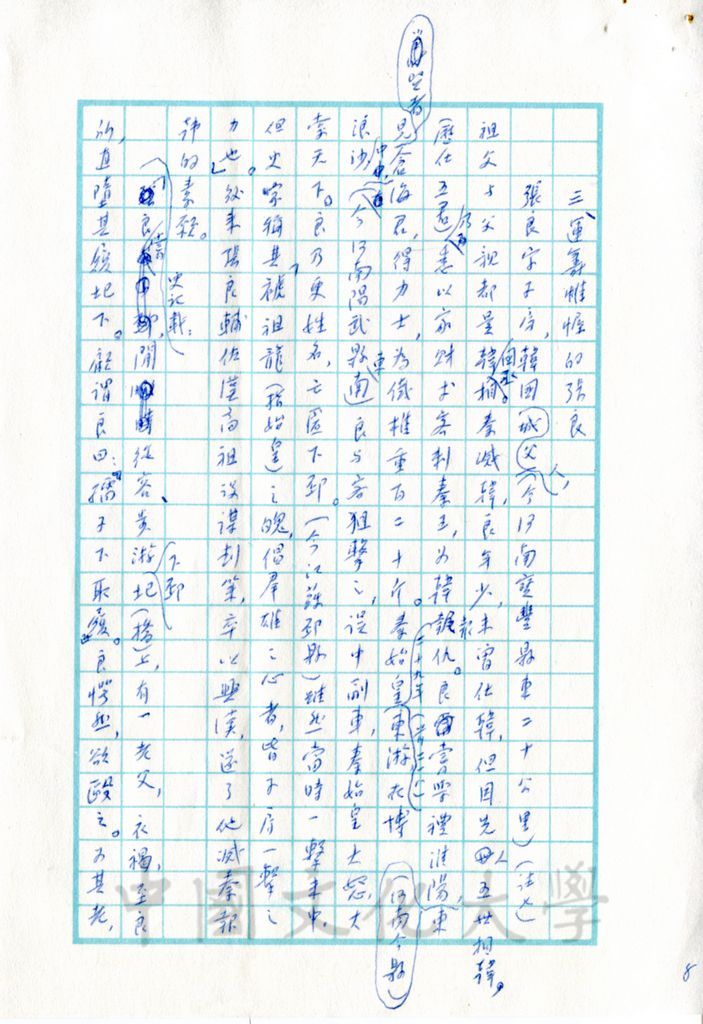 三、運籌帷幄的張良
張良字子房，韓國（城父）人，（今河南寶豐縣東二十公里）（註七）
祖父、父親都是韓國丞相。秦滅韓，良年少，未曾仕韓，但因先人五世相韓，
歷仕五君，乃悉以家財求客刺秦王，為韓報仇。良嘗學禮淮陽，東
見倉海君，得力士，為鐵椎重百二十斤。秦始皇二十九年東游，在博（河南今縣）
浪沙中，（今河南陽武縣東南）良與客狙擊之，誤中副車，秦始皇大怒，大
索天下。良乃更姓名，亡匿下邳。（今江蘇邳縣）雖然當時一擊未中，
但史家稱其「褫祖龍（指始皇）之魄，倡羣雄之心者，皆子房一擊之
力也。」後來張良輔佐漢高祖設謀劃策，卒以興漢，遂了他滅秦報
韓的素願。
史記載：
「良嘗閒從容步游下邳圯（橋）上，有一老父，衣褐，至良
所，直墮其履圯下。顧謂良曰：「孺子下取履。」良愕然，欲毆之。為其老，
8
中國文化大學